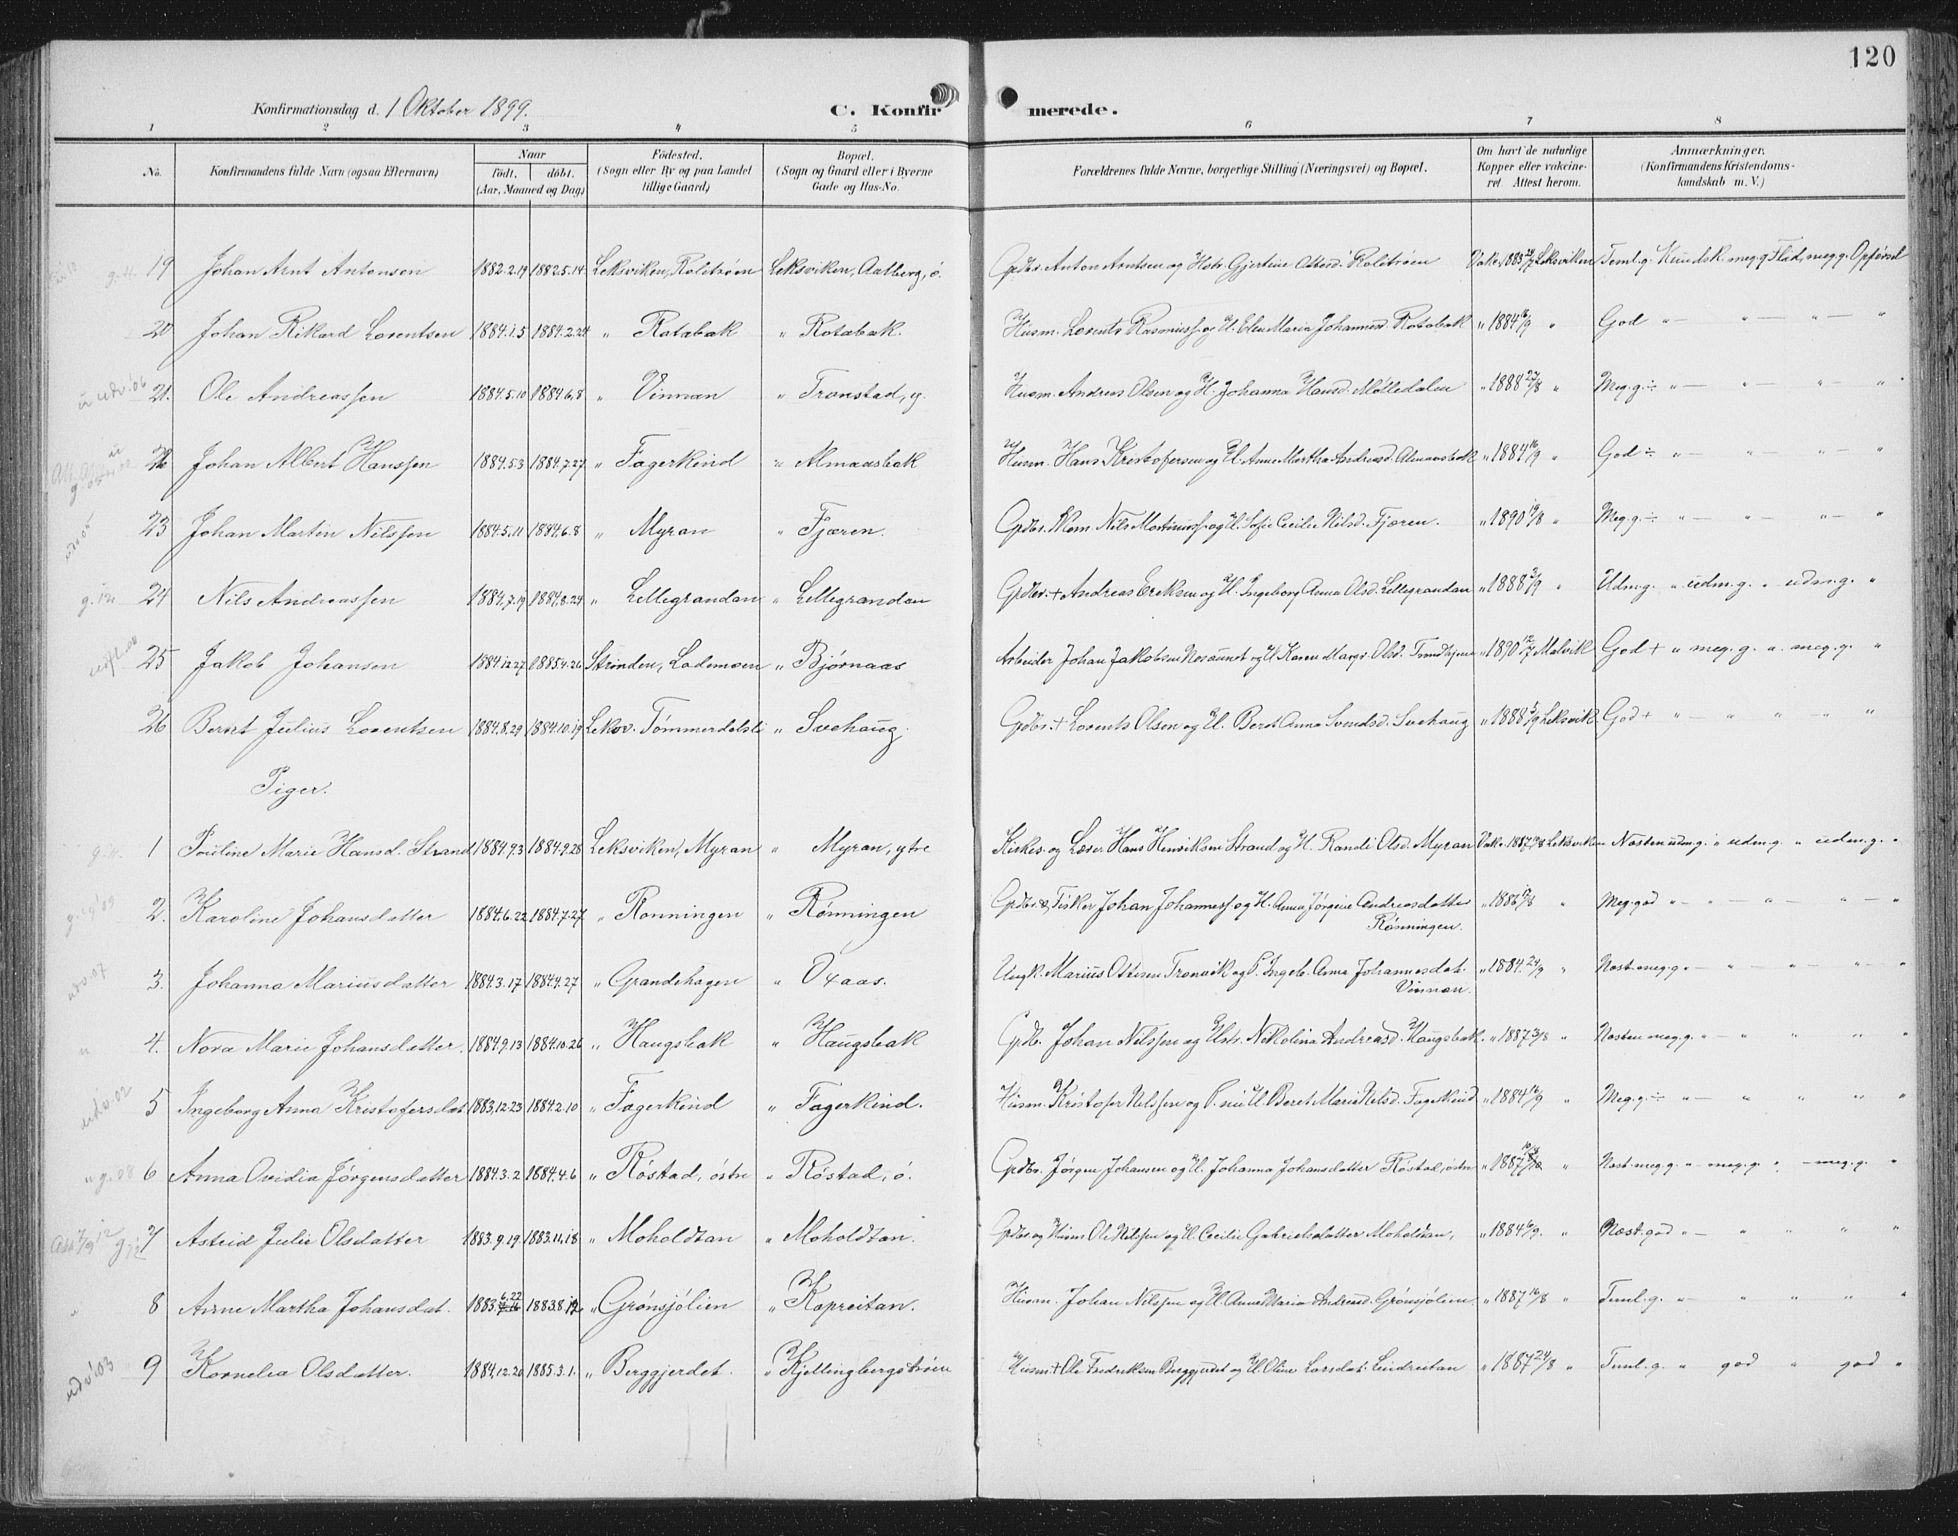 120
Konfirmationsdag d. 1 Oktober 1899.
C. Konfirmerede.
1 2 3 4 5 6 7 8
No. Konfirmandens fulde Navn (ogsaa Efternavn) Naar født. døbt. (Aar, Maaned og Dag) Fødested. (Sogn eller By og paa Landet tillige Gaard) Bopæl. (Sogn og Gaard eller i Byerne Gade og Hus-No. Forældrenes fulde Navne, borgerlige Stilling (Næringsvei) og Bopæl. Om havt de naturlige Kopper eller vakcineret Attest herom. Anmærkninger. (Konfirmandens Kristendomskundskab m. V.)
19 Johan Arnt Antonsen 1882.2.19 1882.5.14 Leksviken, Rolitrøen Leksviken, Aalberg, ø. Gpdbr. Anton Arntsen og Hstr. Gjertine Ottesd. Rolitrøen Vakc. 1883 Leksviken Teml. g. Kundsk. meg. g. Flid, meg g. Opførsel
20 Johan Rikard Lorentsen 1884.1.5 1884.2.24 " Rotabak " Rotabak. Husm. Lorents Rasmuss. og H. Elen Maria Johannesd. Rotabak " 1884 16/9 " God " — " — " — "
21. Ole Andreassen 1884.5.10 1884.6.8 " Vinnan " Tronstad, y. Husm. Andreas Olsen og H. Johanna Hansd. Mølledalen " 1888 27/8 " Meg. g. ÷ " — " — " — "
22 Johan Albert Hanssen 1884.5.3 1884.7.27 " Fagerkind " Almaasbak Husm. Hans Kristofersen og H. Anne Martha Andreasd. Almaasbak " 1884 16/9 " God ÷ " — " — " — "
23 Johan Martin Nilssen 1884.5.11 1884.6.8 " Myran " Fjæren. Gpdbr. Nils Martinuss. og H. Sofie Cecilie Nilsd. Fjæren. " 1890 19/8 " Meg. g. ÷ " — " — " — "
24 Nils Andreassen 1884.7.19 1884.8.24 " Lillegrandan " Lillegrandan Gpdbr. + Andreas Eriksen og H. Ingeborg Anna Olsd. Lillegrandan " 1888 3/9 " Udm. g. " udm. g. " udm. g. "
25 Jakob Johansen 1884.12.27 1885.4.26 Strinden, Lademoen " Bjørnaas Arbeider Johan Jakobsen og H. Karen Margr. Olsd. Trondhjem " 1890 12/7 Malvik God + " meg. g. " meg. g. "
26 Bernt Julius Lorentsen 1884.8.29 1884.10.19 Leksv. Tømmerdalsli " Svehaug. Gpdbr. + Lorents Olsen og H. Berit Anna Svendsd. Svehaug " 1888 3/9 Leksvik God + " — " " " "
Piger.
1 Pouline Marie Hansd. Strand 1884.9.3 1884.9.28 Leksviken, Myran " Myran, ytre Kirkes. og Læser Hans Henriksen Strand og H. Randi Olsd. Myran Vakc. 1887 Leksviken Næsten udm. g. " udm. g. " udm. g. "
2. Karoline Johansdatter 1884.6.22 1884.7.27 " Rønningen " Rønningen Gpdbr. & Fisker Johan Johanness. og H. Anna Jørgine Andreasdatter Rønningen. " 1886 " Meg. god " — " — " — "
3. Johanna Mariusdatter 1884.3.17 1884.4.27 " Grandehagen " Oxaas. Ungk. Marius Ottesen Tronvik og P. Ingeb. Anna Johannesdat. Vinnan. " 1884 24/9 " Næst. meg. g. " — " — " — "
4. Nora Marie Johansdatter. 1884.9.13 1884.10.26 " Haugsbak " Haugsbak Gpdb. Johan Nilssen og Hstr. Nikolina Andreasd. Haugsbak. " 1887 " Næsten meg. g. " — " " " "
5 Ingeborg Anna Kristofersdat. 1883.12.23 1884.2.10 " Fagerkind " Fagerkind. Husm. Kristofer Nilssen og P. nu H. Beret Marie Nilsd. Fagerkind " 1884 16/9 " Meg. g. ÷ " — " " " "
6 Anna Ovidia Jørgensdatter 1884.3.2 1884.4.6 " Røstad, østre " Røstad, ø. Gpdbr. Jørgen Johansen og H. Johanna Johansdatter Røstad, østre " 1887 " Næst. meg. g. " meg. g. " meg. g. "
7 Astrid Julie Olsdatter 1883.9.19 1883.11.18 " Moholdtan " Moholdtan. Gpdbr. og Husm. Ole Nilssen og H. Cecilie Gabrielsdatter Moholdtan, " 1884 " Næst. god " — " " " "
8 Anne Martha Johansdat. 1883.6.22 1883.8.12 " Grønsjølien " Kapreitan. Husm. Johan Nilssen og H. Anne Maria Andreasd. Grønsjølien. " 1887 16/8 " Teml. g. " — " " " "
9 Kornelia Olsdatter. 1884.12.26 1885.3.1. " Berggjerdet. " Kjellingbergstrøen Husm. + Ole Fredriksen Berggjerdet og H. Oline Larsdat. Lindreitan " 1887 24/8 " Teml. g. " god " god "